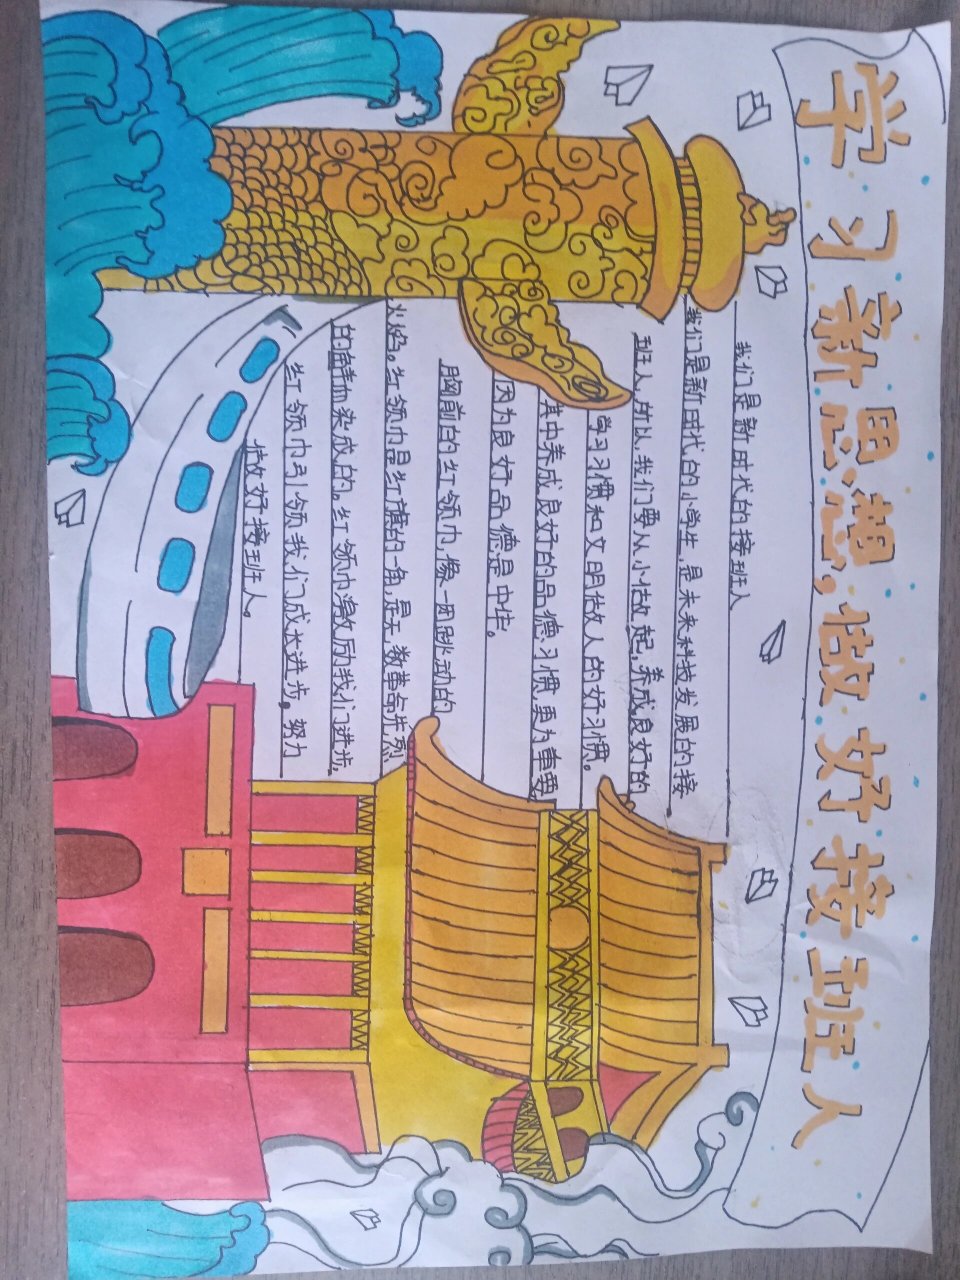 学习新思想，做好接班人
我们是新时代的接班人
我们是新时代的小学生，是未来科技发展的接
班人，所以，我们要从小做起，养成良好的
学习习惯和文明做人的好习惯。
其中养成良好的品德习惯更为重要，
因为良好品德是中住。
胸前的红领巾，像一团跳动的
火焰。红领巾是红旗的一角，是无数革命先烈
的鲜血染成的。红领巾激励我们进步，
红领巾引领我们成长进步。努力
做好接班人。